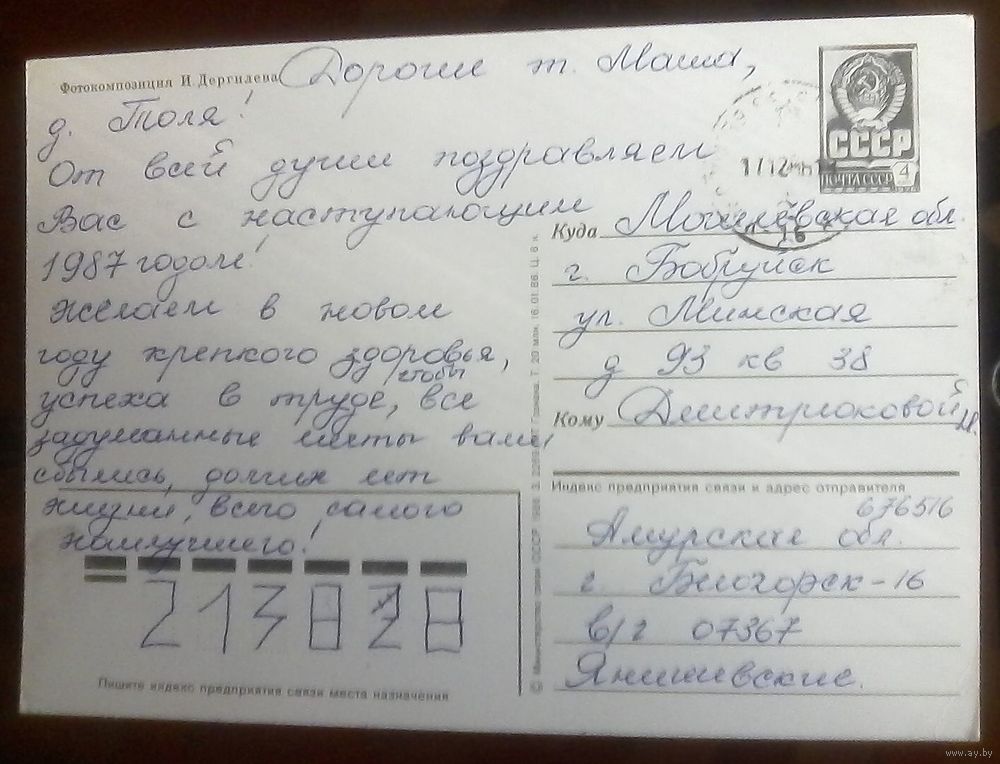 Фотокомпозиция И. Дергилева
Дорогие т. Маша,
д. Толя!
От всей души поздравляем
Вас с наступающим
1987 годом!
Желаем в новом
году крепкого здоровья,
чтобы
успеха в труде, все
задуманные мечты вами
сбылись, долгих лет
жизни, всего самого
наилучшего!
213828
Пишите индекс предприятия связи места назначения
© Министерство связи СССР 1986
16.01.86. Ц. 6 к.
СССР
ПОЧТА СССР 4
1712
16
Куда Могилёвская обл.
г. Бобруйск
ул. Минская
д 93 кв 38
Кому Дмитрюковой М.
Индекс предприятия связи и адрес отправителя
676516
Амурская обл.
г. Белогорск-16
в/г 07367
Янишевские.
www.ay.by